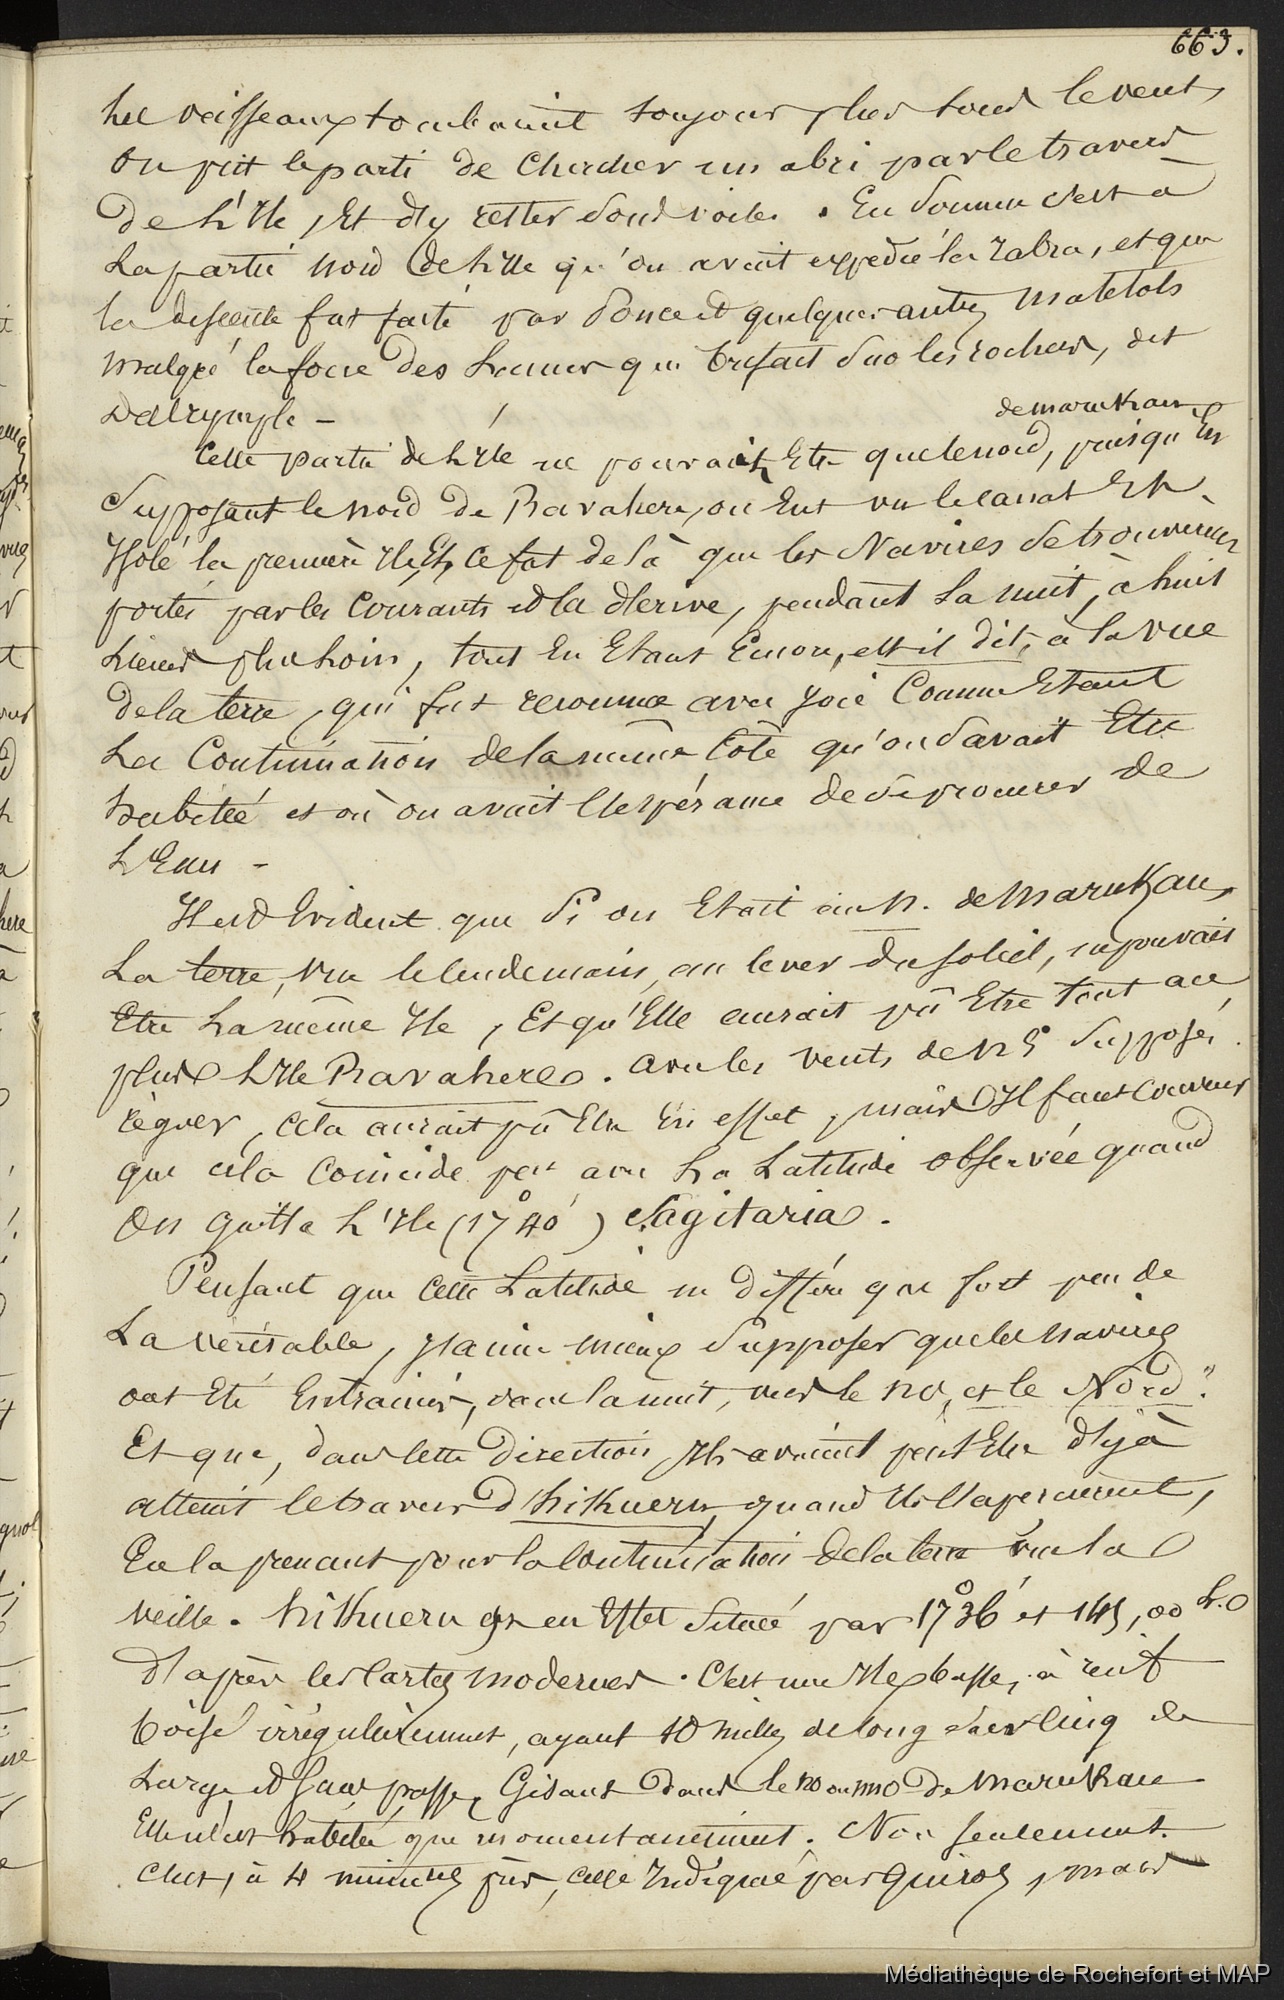 663.
les vaisseaux tombaient toujours plus sous le vent,
On prit le parti de chercher un abri par le travers
De L'Ile, Et d'y rester sous voiles. En somme c'est à
La partie Nord de L'Ile qu'on avait expédié la Zabra, et que
la descente fut faite par Ponce et quelques autres Matelots
malgré la force des Lames qui brisait sur les rochers, dit
Dalrymple —
de marukau
Cette partie de L'Ile ne pouvait Etre que le nord, puisqu'En
Supposant le nord de Ravahere, on Eut vu le canal Et
Isolé la première Ile, Et ce fut de là que les Navires se trouvèrent
portés par les Courants et la dérive, pendant La nuit, à huit
Lieues plus Loin, tout En Etant Encore, est-il dit, à la vue
de la terre, qui fut reconnue avec joie Comme Etant
La Continuation de la même Côte qu'on savait Etre
habitée et où on avait l'Espérance de se procurer de
L'Eau —
Il est Evident que si on Etait au N. de Marukau,
La terre, vue le lendemain, au lever du soleil, ne pouvait
Etre La même Ile, Et qu'Elle aurait pû Etre tout au
plus L'Ile Ravahere. avec les vents de NE supposés
régner, cela aurait pû Etre En effet, mais Il faut convenir
que cela Coincide peu avec La Latitude observée quand
On quitta L'Ile (17° 40') Sagitaria.
Pensant que cette Latitude ne diffère que fort peu de
La véritable, j'aime mieux supposer que les Navires
ont Eté Entrainés, dans la nuit, vers le NO, et le Nord".
Et que, dans cette Direction, Ils avaient peut Etre déjà
atteint le travers d'hikueru, quand Ils l'aperçurent,
En la prenant pour la Continuation de la terre vue la
veille. hikueru est en Effet située par 17° 36' et 145,00 L.O
D'après les Cartes modernes. C'est une Ile basse, à récif
boisé irrégulièrement, ayant 10 milles de long sur cinq de
Large et sans passe, Gisant dans le no ou nno de Marukau
Elle n'est habitée que momentanément. Non seulement
C'est, à 4 minutes près, celle Indiquée par Quiros, mais
Médiathèque de Rochefort et MAP